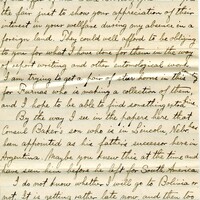 the first to show your appreciation of their
interest in your wellfare during my absence in a
foreign land. They could well afford to be obliging
to you for what I have done for them in the way
of spot writing and other entomological work.
I am trying to get a pair of star horns in this
for Furnas who is making a collection of them,
and I hope to be able to find something
By the way I see in the papers here that
Consul Baker's son who is in Lincoln, Nebr
has appointed as his father's successor here in
Argentina. Maybe you knew this at the time and
have seen him before he left for South America.
I do not know whether I will go to Bolivia or
not. It is getting rather late now and then too